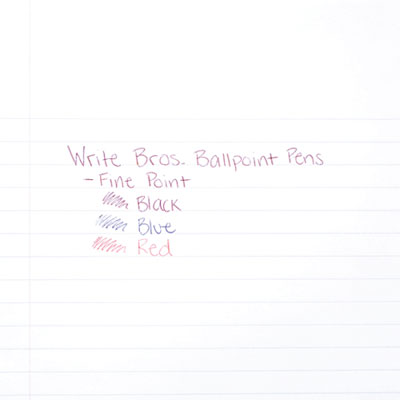 Write Bros. Ballpoint Pens
- Fine Point
Black
Blue
Red